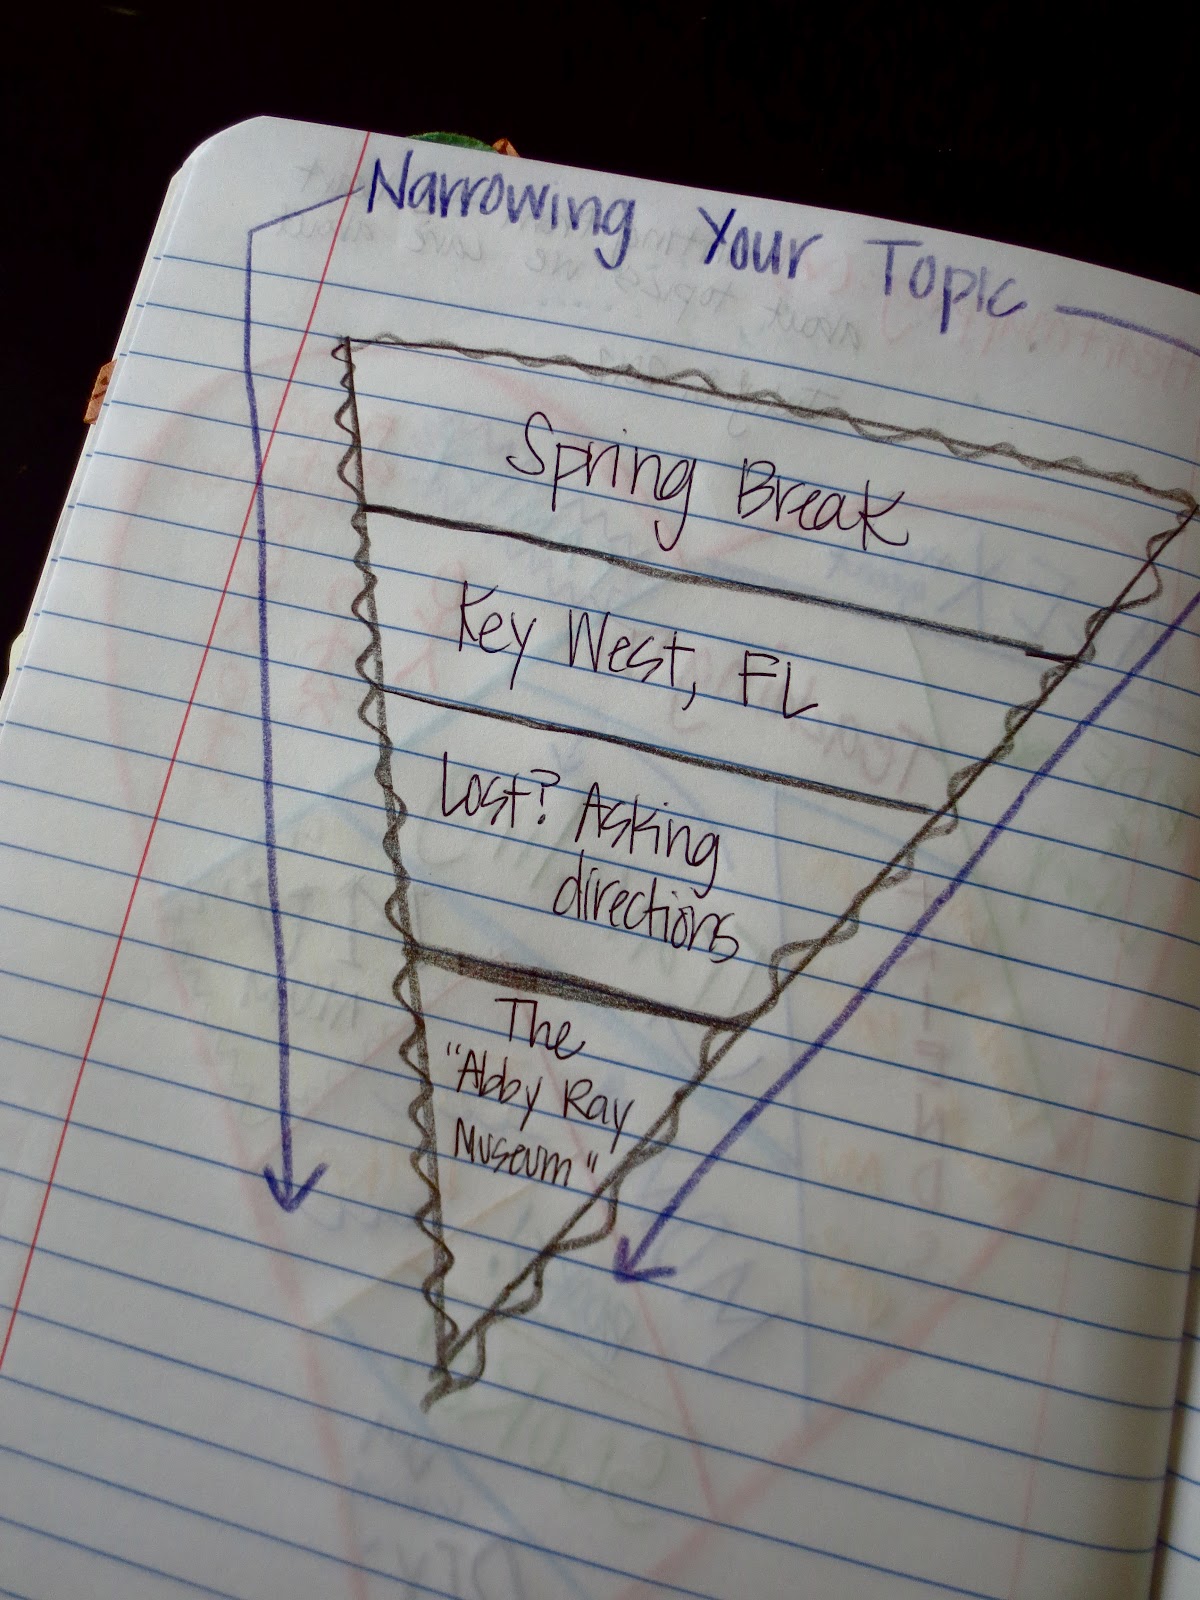 Narrowing Your Topic
Spring Break
Key West, FL
Lost? Asking
directions
The
"Abby Ray
Museum"